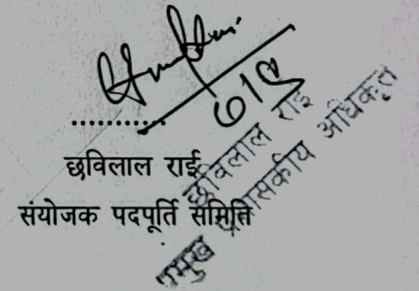 ............
छविलाल राई
संयोजक पदपूर्ति समिति
छविलाल राई
प्रमुख प्रशासकीय अधिकृत